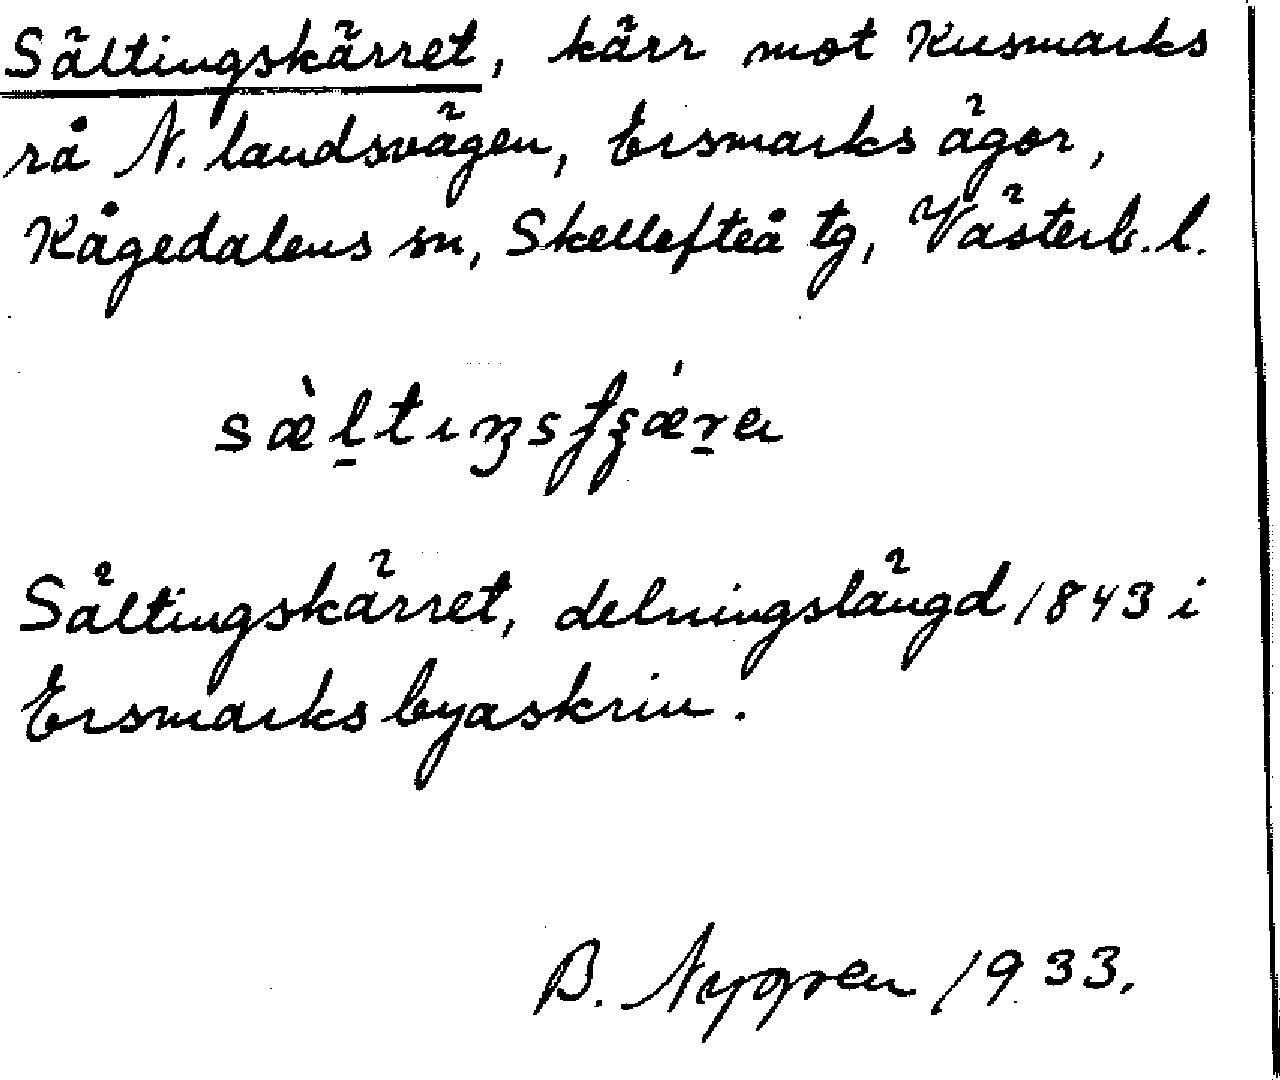 Sältingskärret, kärr mot Kusmarks
rå N. landsvägen, Ersmarks ägor,
Kågedalens sn, Skellefteå tg, Västerb. l.
Sältingskärret, delningslängd 1843 i
Ersmarks byaskrin.
B. Nygren 1933.